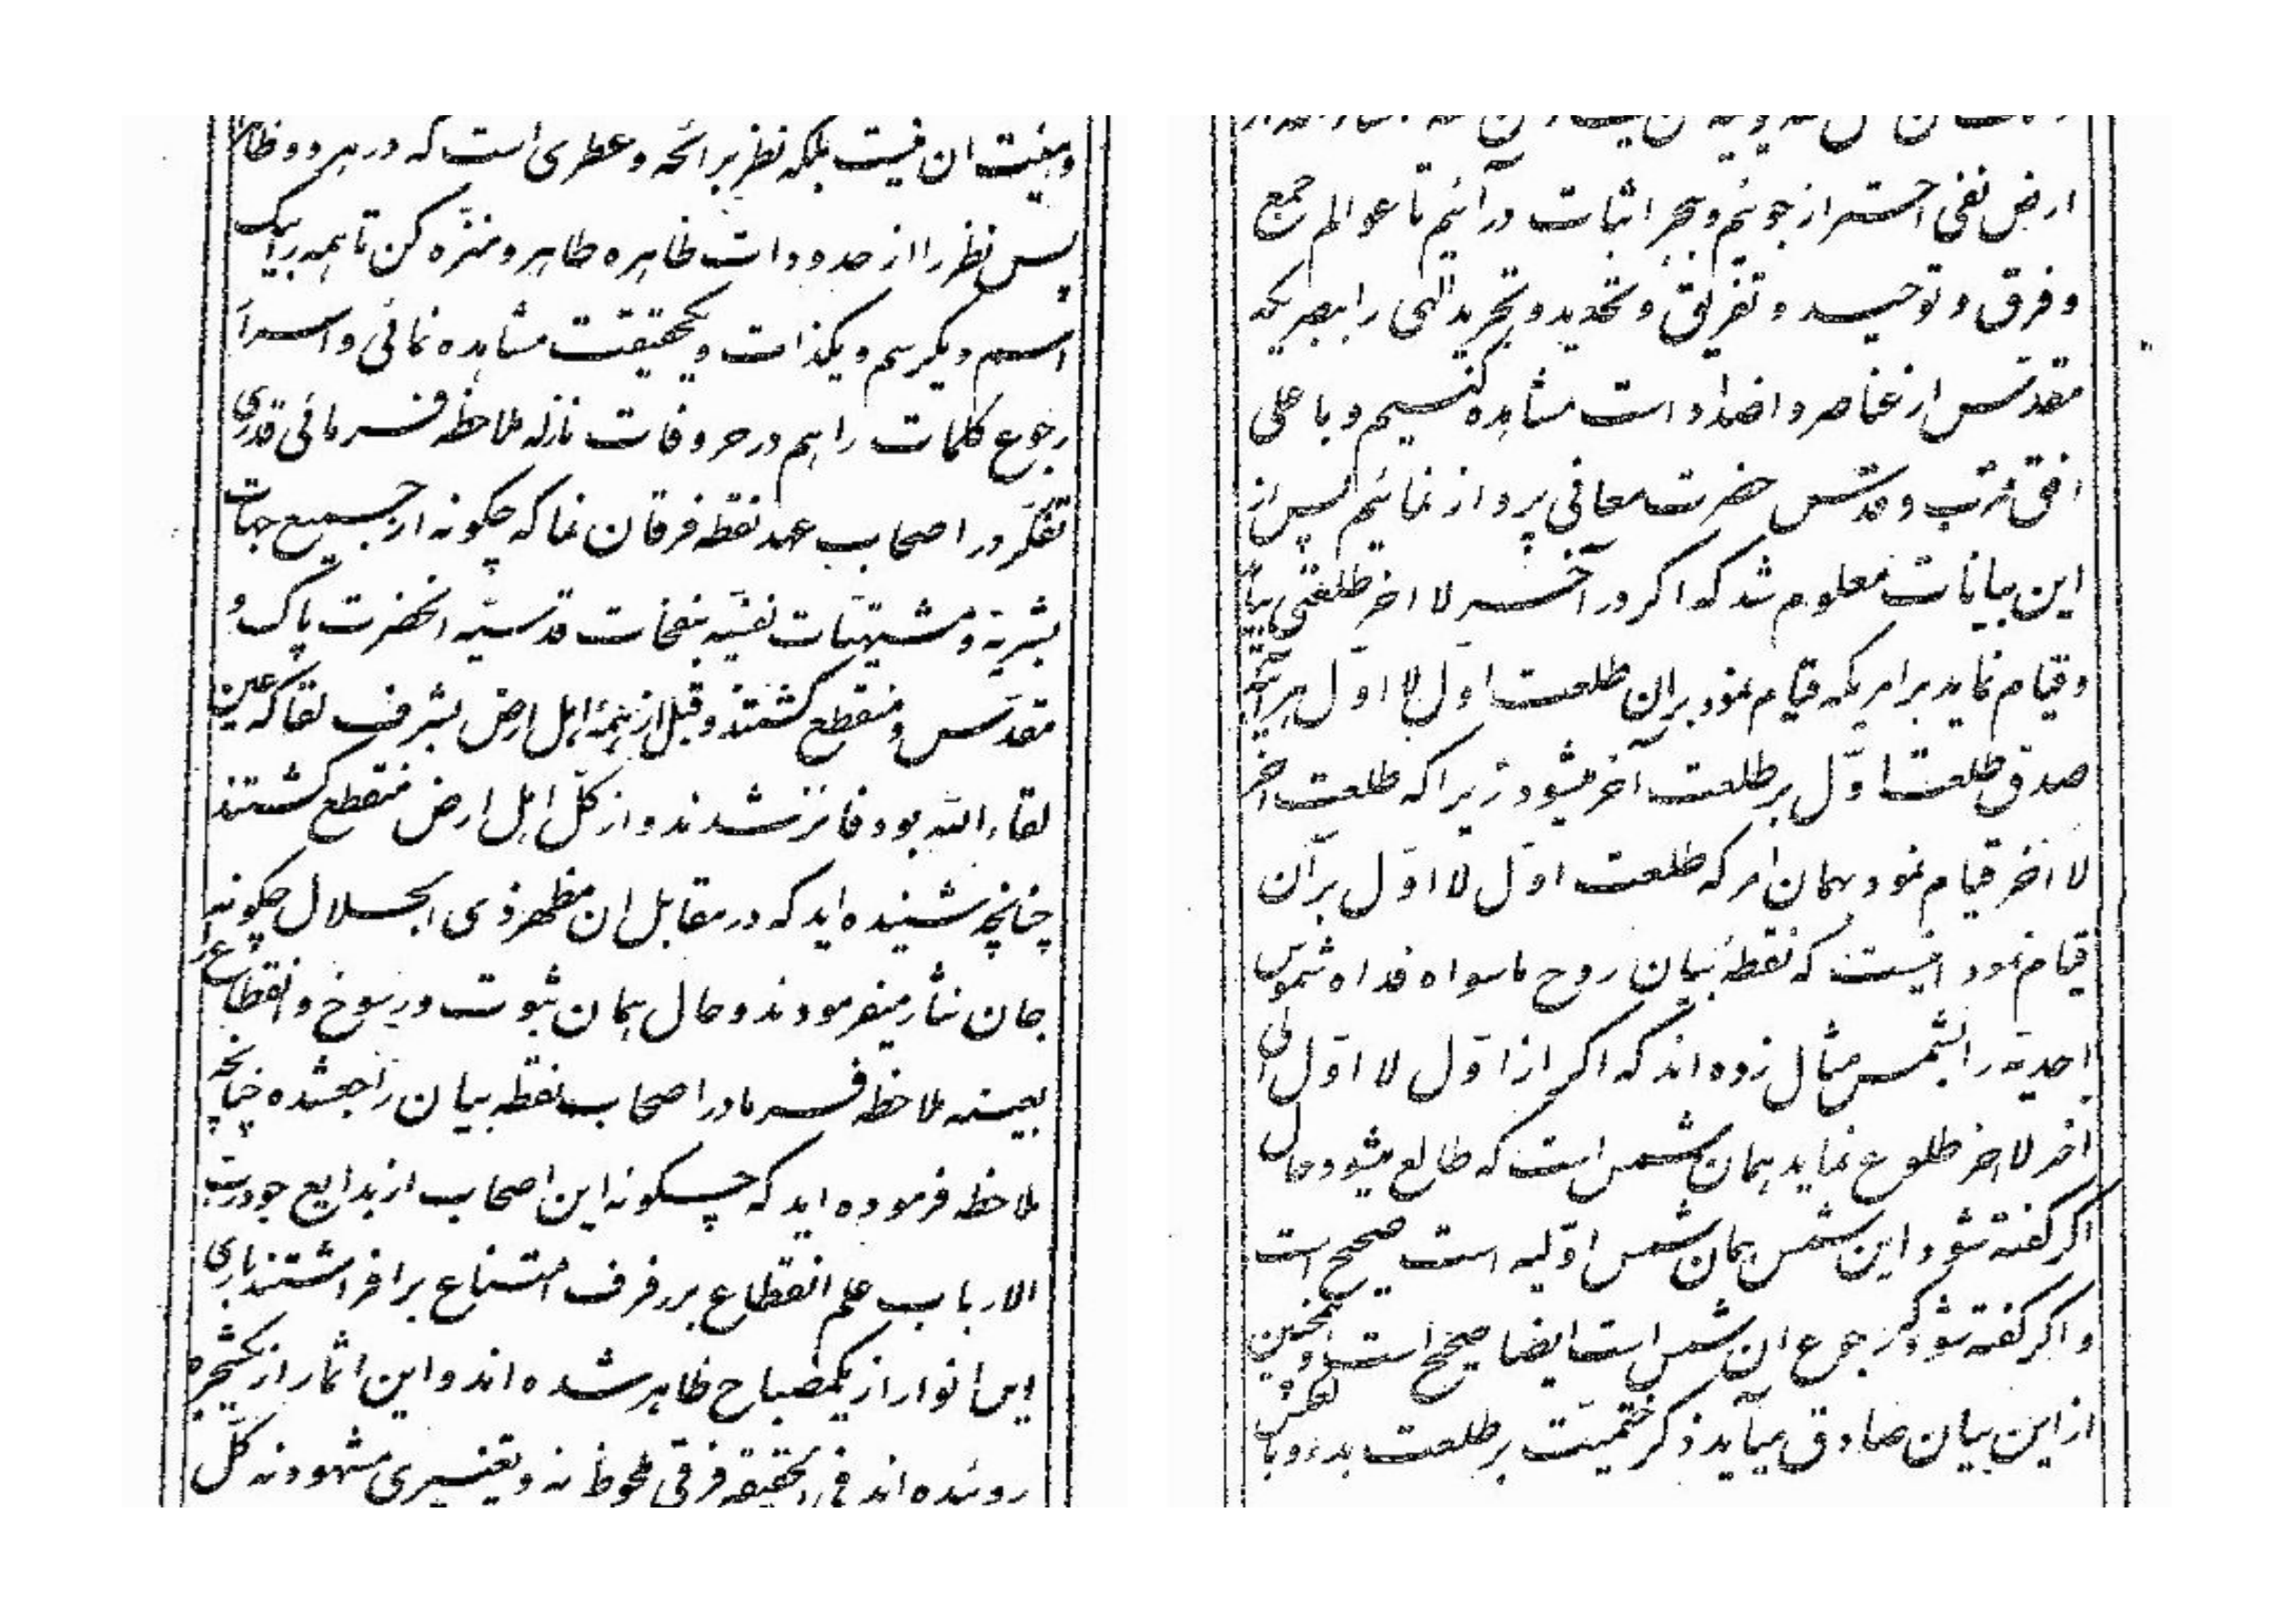 وهیئت ان نیست بلکه نظر برائحه وعطری است که در هر دو ظاهر
پس نظر را از حدودات ظاهره طاهر و منزّه کن تا همه را بیک
اسم و یکرسم و یکذات و یکحقیقت مشاهده نمائی و اسرار
رجوع کلمات را هم در حروفات نازله ملاحظه فرمائی قدری
تفکّر در اصحاب عهد نقطه فرقان نما که چکونه از جمیع جهات
بشریّه و مشتهیّات نفسیّه بنفحات قدسیّه انحضرت پاک و
مقدّس و منقطع کشتند و قبل از همهٔ اهل ارض بشرف لقا که عین
لقاءالله بود فائز شدند و از کلّ اهل ارض منقطع کشتند
چنانچه شنیده اید که در مقابل ان مظهر ذی الجلال چکونه
جان نثار میفرمودند و حال همان ثبوت و رسوخ و انقطاع را
بعینه ملاحظه فرما در اصحاب نقطه بیان راجعشده چنانچه
ملاحظه فرموده اید که چکونه این اصحاب از بدایع جود ربّ
الارباب علم انقطاع بر رفرف امتناع بر افراشتند باری
این انوار از یکمصباح ظاهر شده اند و این اثمار از یکشجره
روئیده اند فی الحقیقه فرقی ملحوظ نه و تغییری مشهود نه کلّ
ارض نفی احتراز جوئیم و ببحر اثبات در آئیم تا عوالم جمع
و فرق و توحید و تفریق و تحدید و تجرید الهی را ببصریکه
مقدّس از عناصر و اضداد است مشاهده کنیم و باعلی
افق قرب و قدس حضرت معانی پرواز نمائیم پس از
این بیانات معلوم شد که اکر در آخر لا اخر طلعتی بیاید
و قیام نماید بر امریکه قیام نمود بران طلعت اوّل لا اوّل هر آینه
صدق طلعت اوّل بر طلعت آخر میشود زیرا که طلعت اخر
لا اخر قیام نمود بهمان امر که طلعت اوّل لا اوّل بر آن
قیام نمود اینست که نقطهٔ بیان روح ماسواه فداه شموس
احدیّه را بشمس مثال زده اند که اکر از اوّل لا اوّل الی
اخر لا اخر طلوع نماید همان شمس است که طالع میشود حال
اکر کفته شود این شمس همان شمس اوّلیه است صحیح است
و اکر کفته شود که رجوع ان شمس است ایضا صحیح است و همچنین
از این بیان صادق میآید ذکر ختمیّت بر طلعت بدء و بالعکس